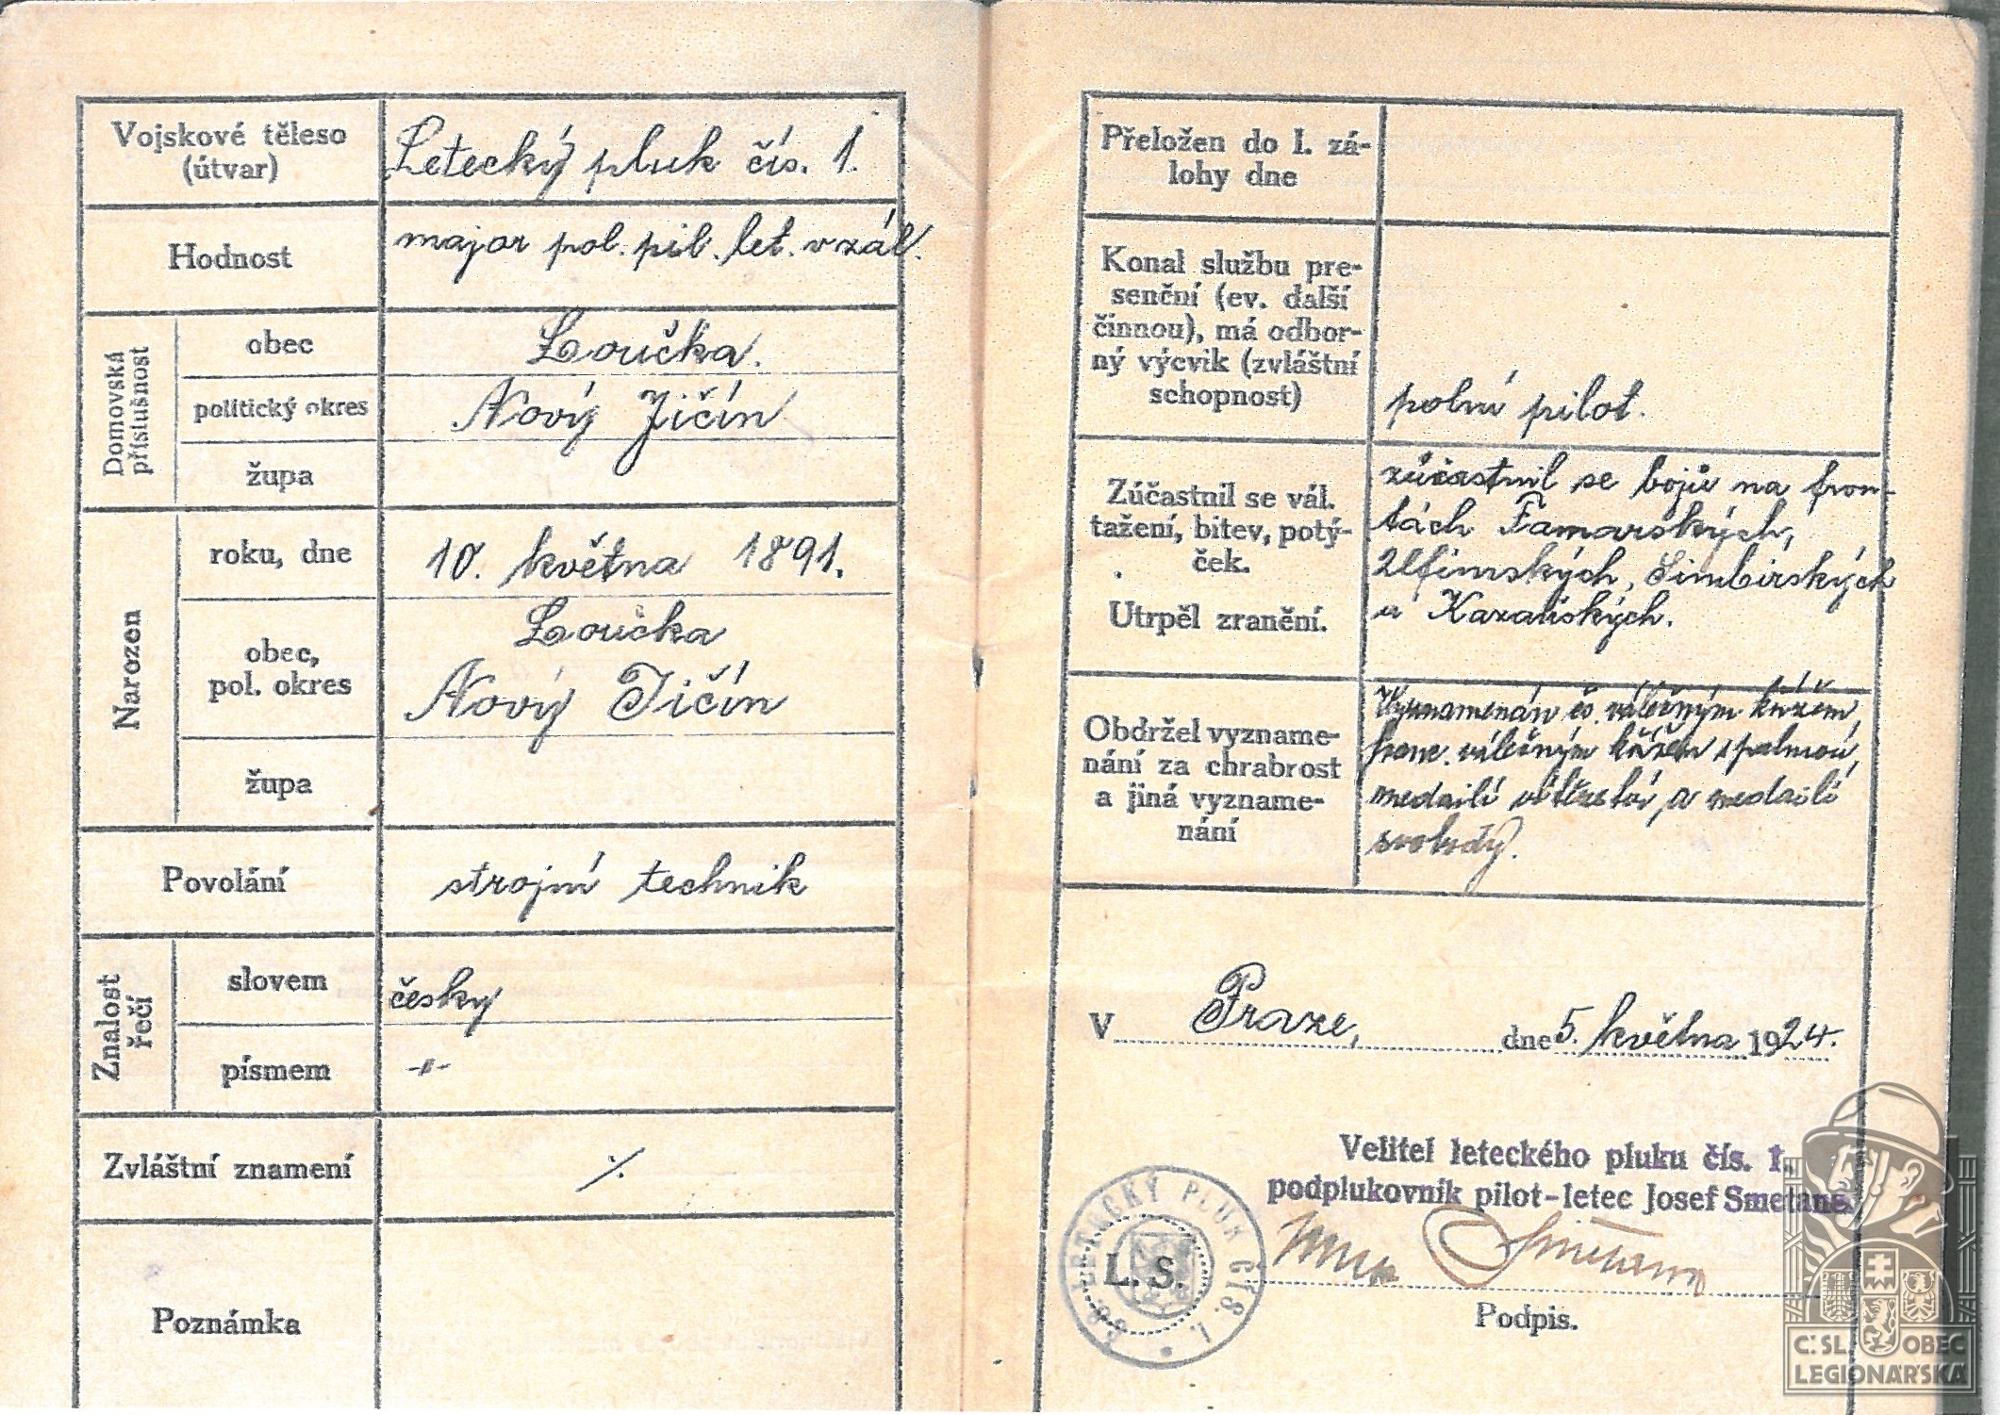 Vojskové těleso
(útvar)
Letecký pluk čís. 1.
Hodnost
major pol. pil. let. v zál.
Domovská
příslušnost
obec
Loučka.
politický okres
Nový Jičín
župa
Narozen
roku, dne
10. května 1891.
obec,
pol. okres
Loučka
Nový Jičín
župa
Povolání
strojní technik
Znalost
řečí
slovem
česky
písmem
-"-
Zvláštní znamení
./.
Poznámka
Přeložen do I. zá-
lohy dne
Konal službu pre-
senční (ev. další
činnou), má odbor-
ný výcvik (zvláštní
schopnost)
polní pilot.
Zúčastnil se vál.
tažení, bitev, potý-
ček.
Utrpěl zranění.
zúčastnil se bojů na fron-
tách Samarských,
Ufimských, Simbirských
a Kazaňských.
Obdržel vyzname-
nání za chrabrost
a jiná vyzname-
nání
Vyznamenán čs. válečným křížem,
franc. válečným křížem s palmou,
medailí vítězství, a medailí
svobody.
V Praze, dne 5. května 1924.
Velitel leteckého pluku čís. 1.
podplukovník pilot-letec Josef Smetana.
Smetana
L. S.
ČS. LETECKÝ PLUK ČÍS. 1.
Podpis.
Č: SL. OBEC
LEGIONÁŘSKÁ